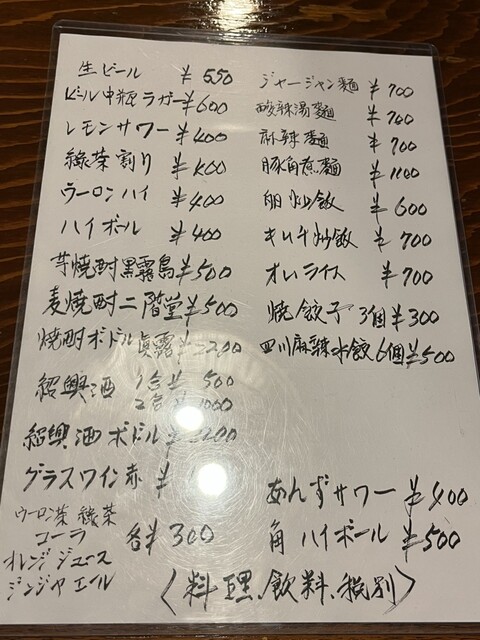 生ビール ¥550
ビール中瓶ラガー ¥600
レモンサワー ¥400
緑茶割り ¥400
ウーロンハイ ¥400
ハイボール ¥400
芋焼酎黒霧島 ¥500
麦焼酎二階堂 ¥500
焼酎ボドル 眞露 ¥2200
紹興酒 1合 ¥500
2合 ¥1000
紹興酒ボドル
グラスワイン赤 ¥
ウーロン茶 緑茶
コーラ
オレンジジュース
ジンジャエール
各¥300
ジャージャン麺 ¥700
酸辣湯麺 ¥700
麻辣麺 ¥700
豚角煮麺 ¥1100
卵炒飯 ¥600
キムチ炒飯 ¥700
オムライス ¥700
焼餃子 3個 ¥300
四川麻辣水餃 6個 ¥500
あんずサワー ¥400
角ハイボール ¥500
〈料理、飲料、税別〉